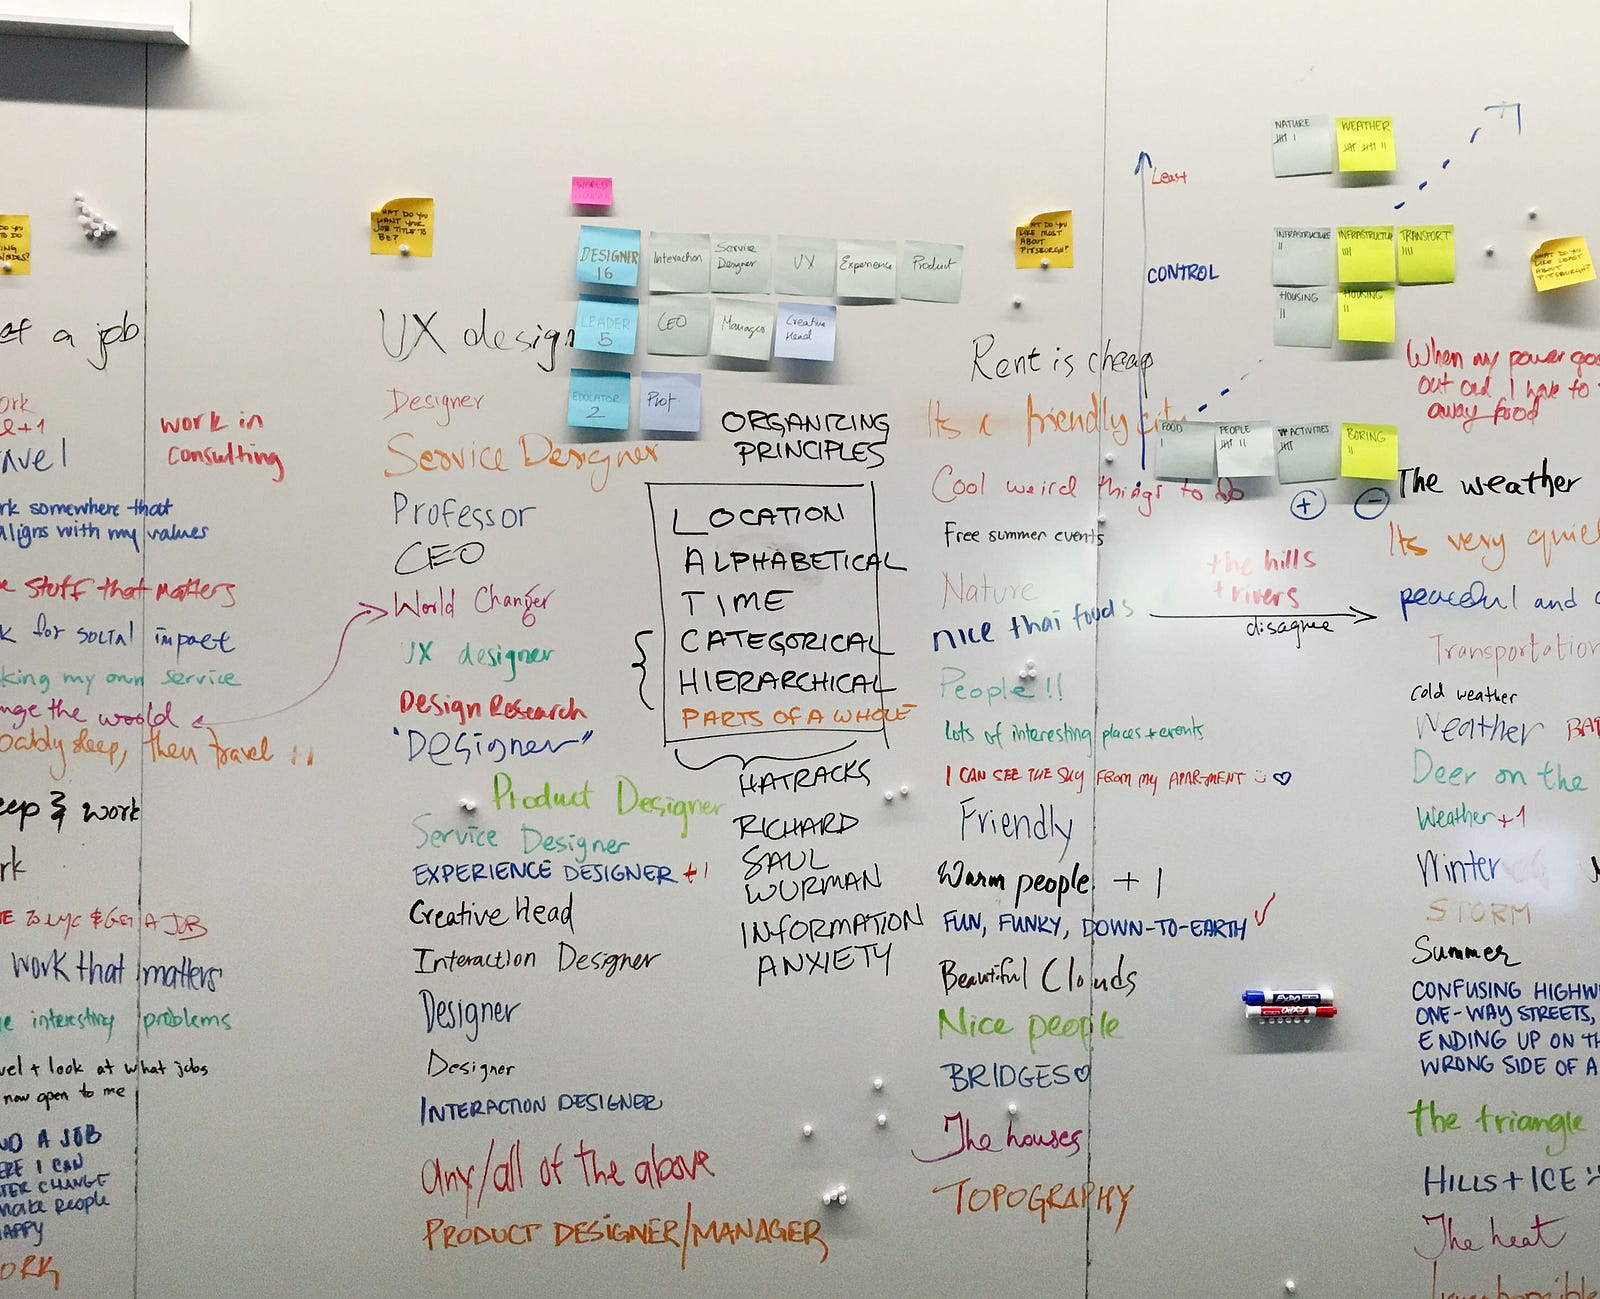 DO YOU
TO DO
ef a job
ork
e+1
avel
work in
consulting
rk somewhere that
aligns with my values
e stuff that matters
k for social impact
king my own service
nge the world
bably sleep, then travel
eep & work
rk
E TO NYC & GET A JOB
work that matters
e interesting problems
vel + look at what jobs
now open to me
ND A JOB
ERE I CAN
TER CHANGE
make people
HAPPY
ORK
WHAT DO YOU
WANT YOUR
JOB TITLE TO
BE?
WORLD
DESIGNER
16
Interaction
Service
Designer
UX
Experience
Product
LEADER
5
CEO
Manager
Creative
Head
EDUCATOR
2
Prof
UX design
Designer
Service Designer
Professor
CEO
World Changer
UX designer
Design Research
"Designer"
Product Designer
Service Designer
EXPERIENCE DESIGNER +1
Creative Head
Interaction Designer
Designer
Designer
INTERACTION DESIGNER
any/all of the above
PRODUCT DESIGNER/MANAGER
ORGANIZING
PRINCIPLES
LOCATION
ALPHABETICAL
TIME
CATEGORICAL
HIERARCHICAL
PARTS OF A WHOLE
HATRACKS
RICHARD
SAUL
WURMAN
INFORMATION
ANXIETY
WHAT DO YOU
LIKE MOST
ABOUT
PITTSBURGH?
Rent is cheap
Its a friendly city
Cool weird things to do
Free summer events
Nature
nice thai foods
People!!
lots of interesting places + events
I CAN SEE THE SKY FROM MY APARTMENT
Friendly
Warm people +1
FUN, FUNKY, DOWN-TO-EARTH
Beautiful Clouds
Nice people
BRIDGES
The houses
TOPOGRAPHY
Least
CONTROL
NATURE
WEATHER
INFRASTRUCTURE
INFRASTRUCTURE
TRANSPORT
HOUSING
HOUSING
FOOD
PEOPLE
ACTIVITIES
BORING
+
−
the hills
+ rivers
disagree
EXPO
EXPO
WHAT DO YOU
LIKE LEAST
ABOUT
PITTSBURGH?
When my power goe
out and I have to
away food
The weather
Its very quie
peaceful and
Transportation
cold weather
Weather BA
Deer on the
Weather +1
Winter
STORM
Summer
CONFUSING HIGHW
ONE-WAY STREETS,
ENDING UP ON TH
WRONG SIDE OF A
the triangle
HILLS + ICE
The heat